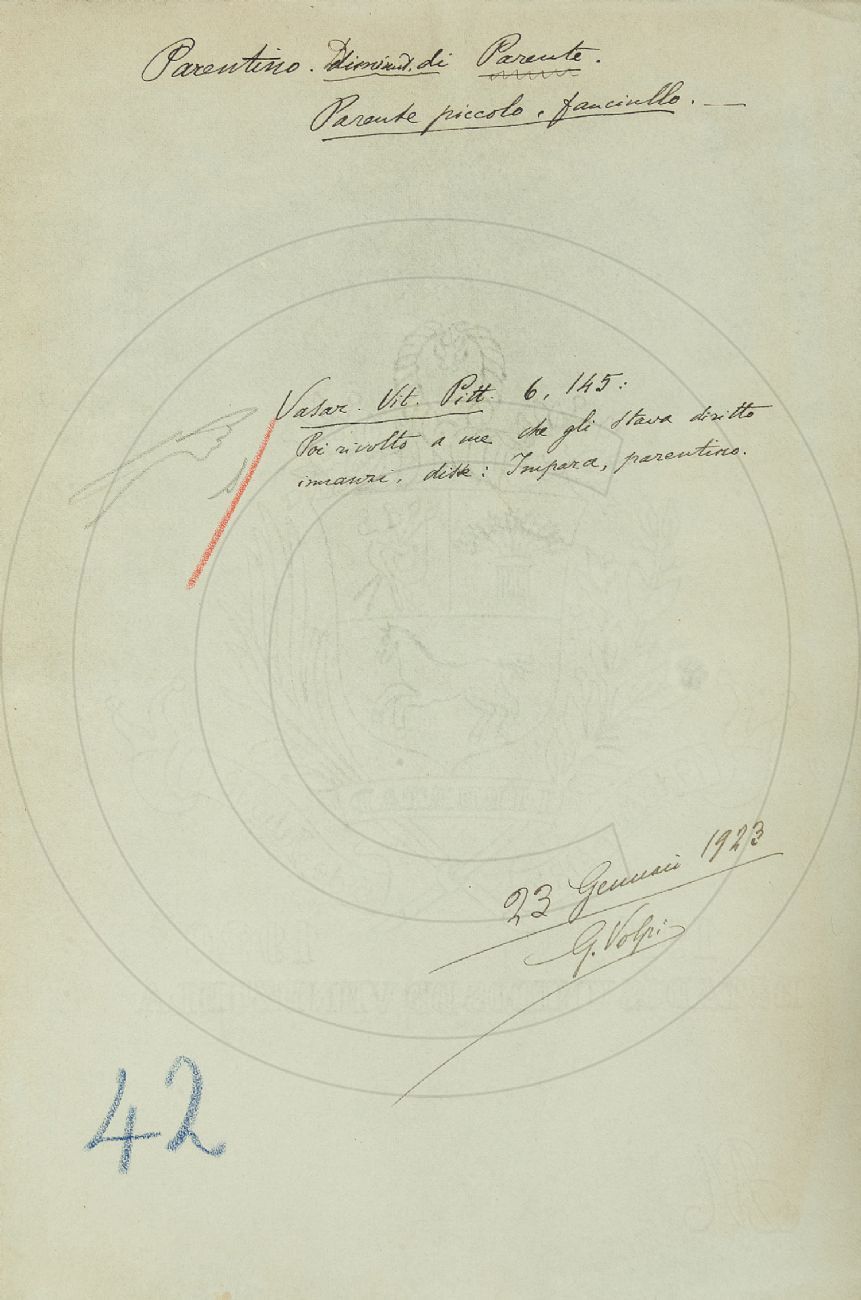 Parentino. Diminut. di Parente.
Parente piccolo, fanciullo. —
Vasar. Vit. Pitt. 6, 145:
Poi rivolto a me che gli stava diritto
innanzi, disse: Impara, parentino.
23 Gennaio 1923
G. Volpi
42